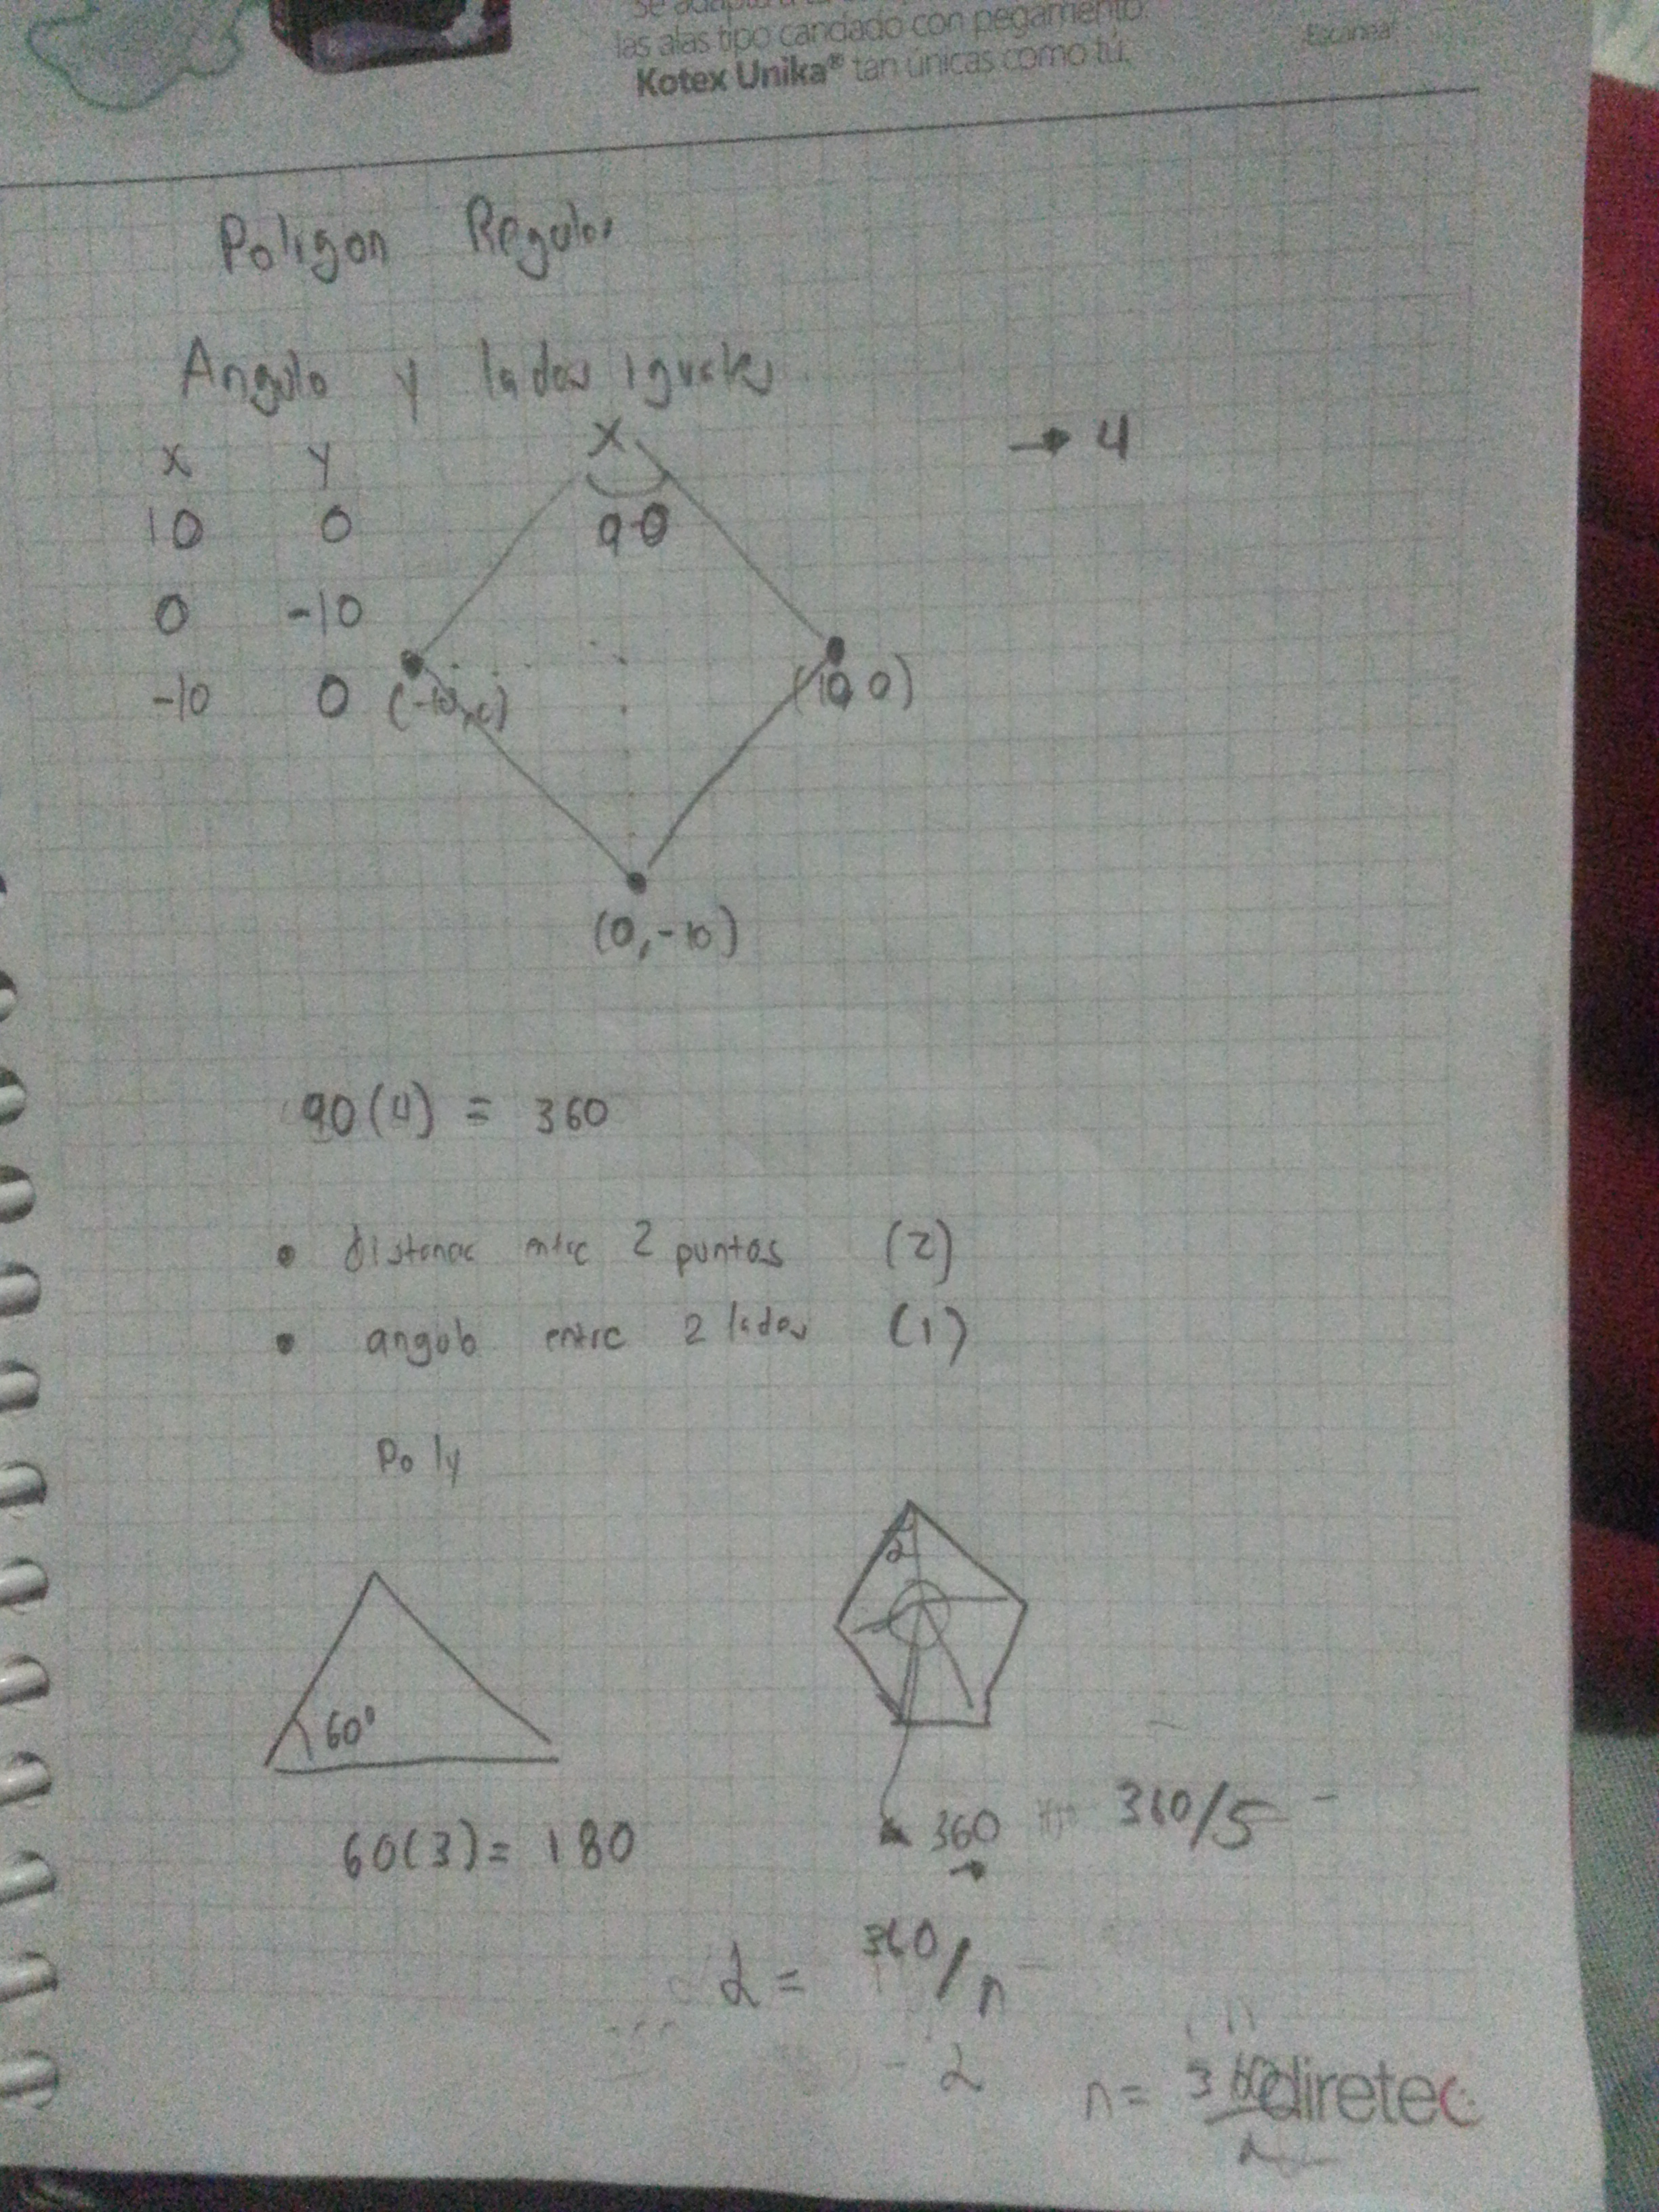 Se adapta a
las alas tipo candado con pegamento.
Kotex Unika® tan únicas como tú.
Escanea
Poligon Regular
Angulo y lados iguales
X Y
10 0
0 -10
-10 0
X
90
→ 4
(-10,0)
(10,0)
(0,-10)
90(4) = 360
• distanac entre 2 puntos (2)
• angulo entre 2 lados (1)
Poly
60°
60(3) = 180
α
360
360/5
α = 360/n
α
n = 360
diretec